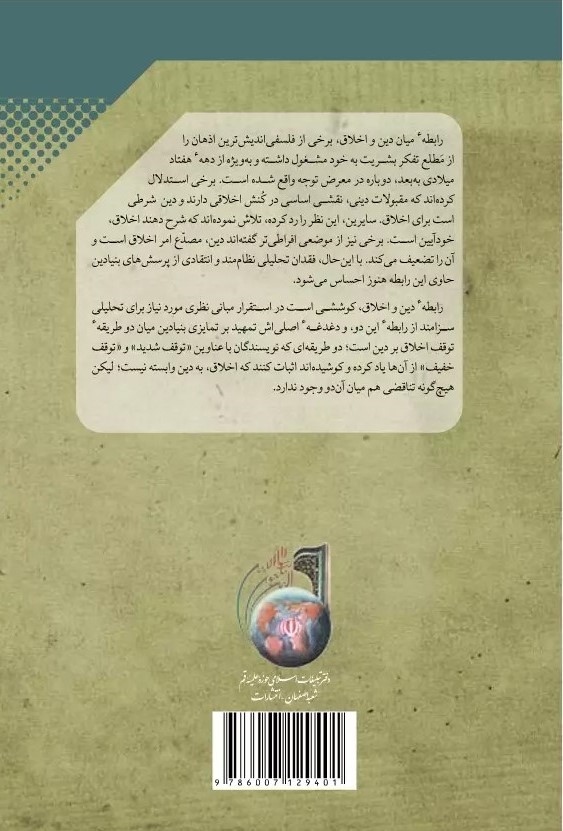 رابطهٔ میان دین و اخلاق، برخی از فلسفی‌اندیش‌ترین اذهان را
از مَطلع تفکر بشریت به خود مشغول داشته و به‌ویژه از دههٔ هفتاد
میلادی به‌بعد، دوباره در معرض توجه واقع شده است. برخی استدلال
کرده‌اند که مقبولات دینی، نقشی اساسی در کُنش اخلاقی دارند و دین شرطی
است برای اخلاق. سایرین، این نظر را رد کرده، تلاش نموده‌اند که شرح دهند اخلاق،
خودآیین است. برخی نیز از موضعی افراطی‌تر گفته‌اند دین، مصدّع امر اخلاق است و
آن را تضعیف می‌کند. با این‌حال، فقدان تحلیلی نظام‌مند و انتقادی از پرسش‌های بنیادین
حاوی این رابطه هنوز احساس می‌شود.
رابطهٔ دین و اخلاق، کوششی است در استقرار مبانی نظری مورد نیاز برای تحلیلی
سزامند از رابطهٔ این دو، و دغدغهٔ اصلی‌اش تمهید بر تمایزی بنیادین میان دو طریقهٔ
توقف اخلاق بر دین است؛ دو طریقه‌ای که نویسندگان با عناوین «توقف شدید» و «توقف
خفیف» از آن‌ها یاد کرده و کوشیده‌اند اثبات کنند که اخلاق، به دین وابسته نیست؛ لیکن
هیچ‌گونه تناقضی هم میان آن‌دو وجود ندارد.
دفتر تبلیغات اسلامی حوزه علمیه قم
شعبه اصفهان . انتشارات
9 786007 129401